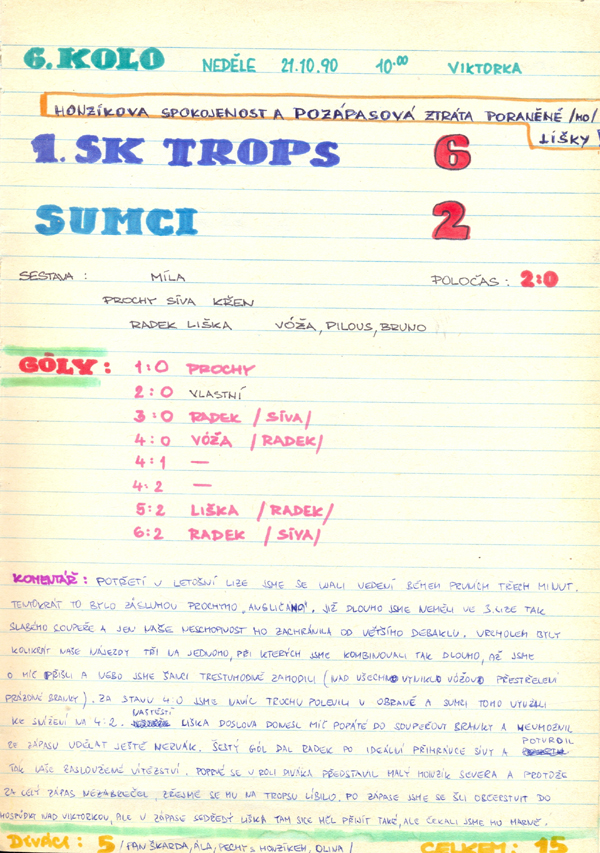 6. KOLO NEDĚLE 21.10.90 10.00 VIKTORKA
HONZÍKOVA SPOKOJENOST A POZÁPASOVÁ ZTRÁTA PORANĚNÉ /HO/
LIŠKY!
1. SK TROPS 6
SUMCI 2
SESTAVA: MÍLA POLOČAS: 2:0
PROCHY SÍVA KŘEN
RADEK LIŠKA VÓŽA, PILOUS, BRUNO
GÓLY: 1:0 PROCHY
2:0 VLASTNÍ
3:0 RADEK /SÍVA/
4:0 VÓŽA /RADEK/
4:1 —
4:2 —
5:2 LIŠKA /RADEK/
6:2 RADEK /SÍVA/
KOMENTÁŘ: POTŘETÍ V LETOŠNÍ LIZE JSME SE UJALI VEDENÍ BĚHEM PRVNÍCH TŘECH MINUT.
TENTOKRÁT TO BYLO ZÁSLUHOU PROCHYHO, ANGLIČANŮ. JIŽ DLOUHO JSME NEMĚLI VE 3. LIZE TAK
SLABÉHO SOUPEŘE A JEN NAŠE NESCHOPNOST HO ZACHRÁNILA OD VĚTŠÍHO DEBAKLU. VRCHOLEM BYLY
KOLIKRÁT NAŠE NÁJEZDY TŘI NA JEDNOHO, PŘI KTERÝCH JSME KOMBINOVALI TAK DLOUHO, AŽ JSME
O MÍČ PŘIŠLI A NEBO JSME ŠANCI TRESTUHODNĚ ZAHODILI (NAD VŠECHNO VYNIKLO VÓŽOVO PŘESTŘELENÍ
PRÁZDNÉ BRANKY). ZA STAVU 4:0 JSME NAVÍC TROCHU POLEVILI V OBRANĚ A SUMCI TOHO VYUŽILI
KE SNÍŽENÍ NA 4:2. NAŠTĚSTÍ LIŠKA DOSLOVA DONESL MÍČ POPÁTÉ DO SOUPEŘOVY BRANKY A NEUMOŽNIL
ZE ZÁPASU UDĚLAT JEŠTĚ NERVÁK. ŠESTÝ GÓL DAL RADEK PO IDEÁLNÍ PŘIHRÁVCE SÍVY A POTVRDIL
TAK NAŠE ZASLOUŽENÉ VÍTĚZSTVÍ. POPRVÉ SE V ROLI DIVÁKA PŘEDSTAVIL MALÝ HONZÍK SEVERA A PROTOŽE
ZA CELÝ ZÁPAS NEZABREČEL, ZŘEJMĚ SE MU NA TROPSU LÍBILO. PO ZÁPASE JSME SE ŠLI OBČERSTVIT DO
HOSPŮDKY NAD VIKTORKOU, ALE V ZÁPASE SEDŘENÝ LIŠKA TAM SICE MĚL PŘIJÍT TAKÉ, ALE ČEKALI JSME HO MARNĚ.
DIVÁCI: 5 /PAN ŠKARDA, ÁLA, PECHY S HONZÍKEM, OLIVA/ CELKEM: 15